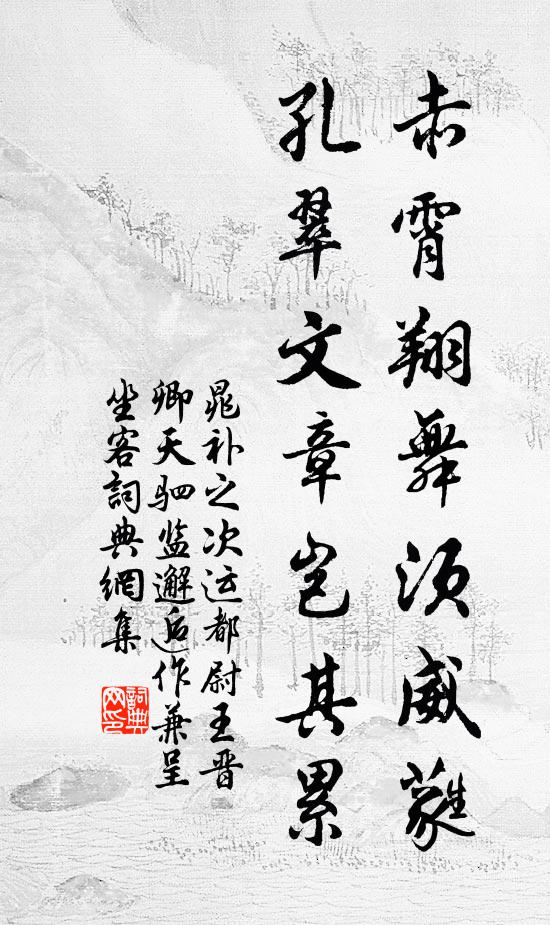 赤霄翔舞须威蕤
孔翠文章岂其累
晁补之次运都尉王晋
卿天驷监邂逅作兼呈
坐客詞典網集
詞典网印